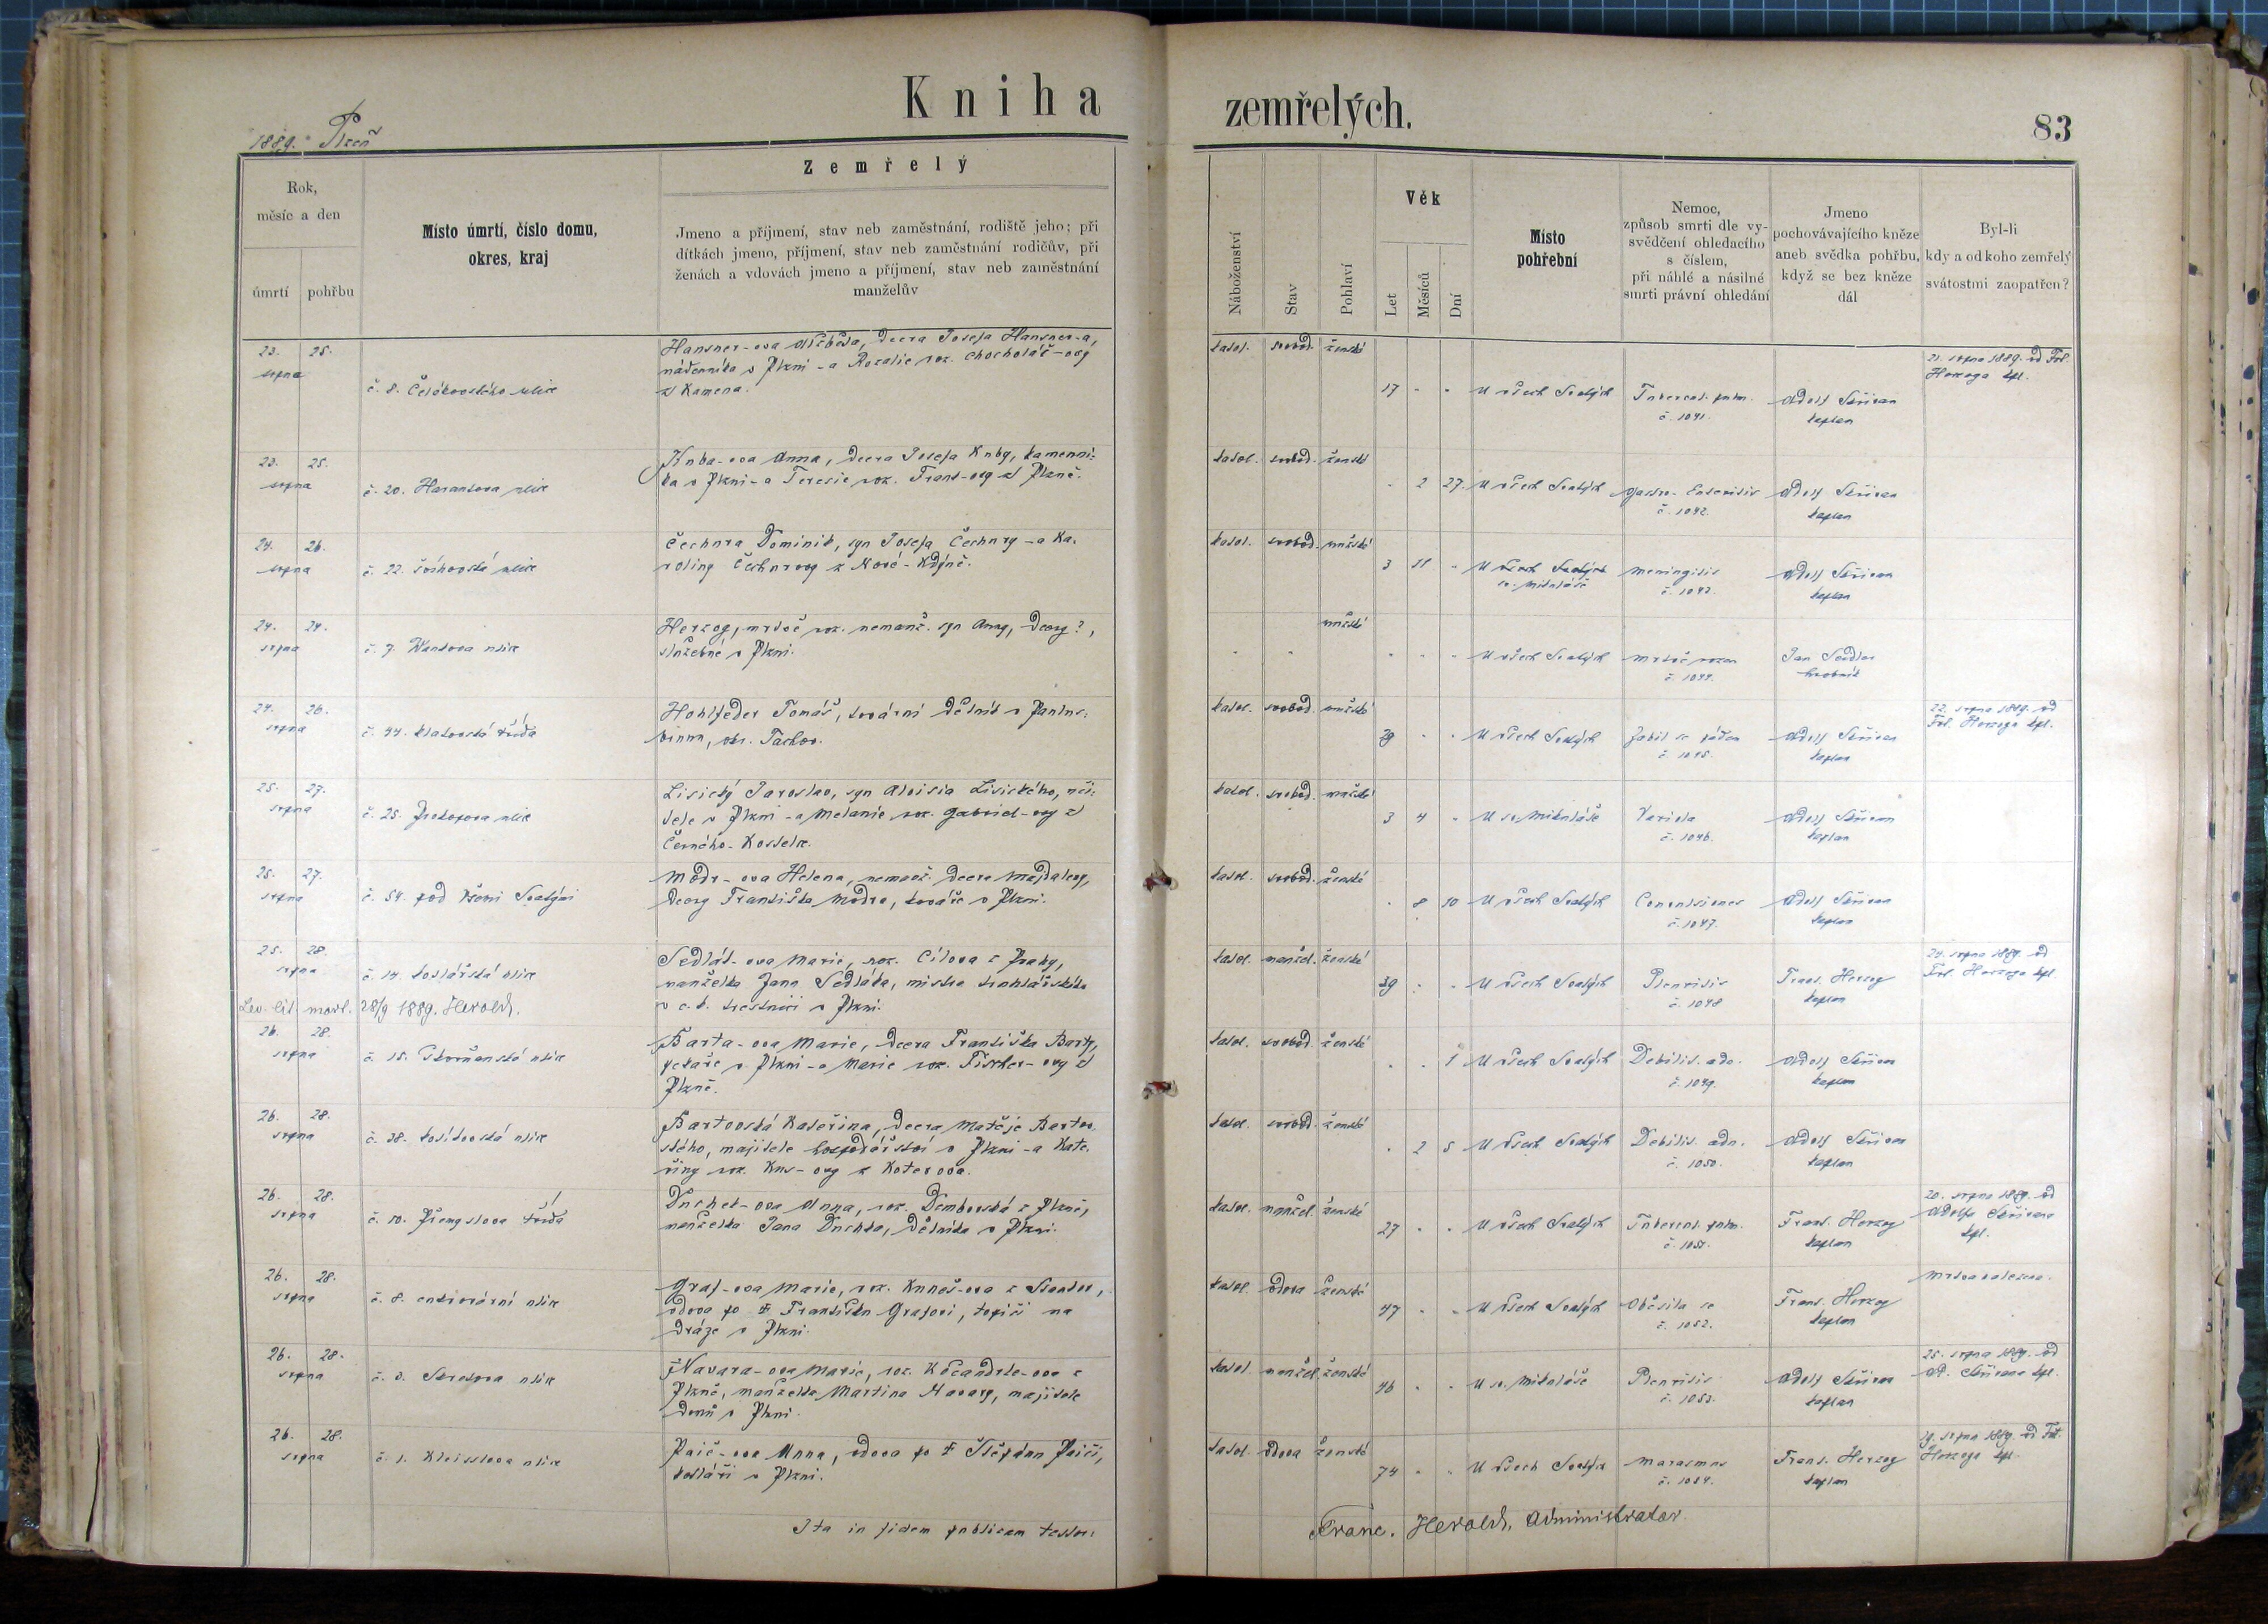 Kniha zemřelých.
83
1889. Plzeň
Rok, měsíc a den
úmrtí
pohřbu
Místo úmrtí, číslo domu,
okres, kraj
Zemřelý
Jmeno a příjmení, stav neb zaměstnání, rodiště jeho; při
dítkách jmeno, příjmení, stav neb zaměstnání rodičův, při
ženách a vdovách jmeno a příjmení, stav neb zaměstnání
manželův
Náboženství
Stav
Pohlaví
Věk
Let
Měsíců
Dní
Místo
pohřební
Nemoc,
způsob smrti dle vy-
svědčení ohledacího
s číslem,
při náhlé a násilné
smrti právní ohledání
Jmeno
pochovávajícího kněze
aneb svědka pohřbu,
když se bez kněze
dál
Byl-li
kdy a od koho zemřelý
svátostmi zaopatřen?
23. 25.
srpna
č. 8. Čelakovského ulice
Hansner-ova Alžběta, dcera Josefa Hansner-a,
nádenníka v Plzni-a Rozalie roz. Chocholáč-ovy
z Kamena.
katol. svobod. ženské
17 - -
U všech Svatých
Tubercul. pulm.
č. 1041.
Adolf Skřivan
kaplan
21. srpna 1889. od Frt.
Herzoga kpl.
23. 25.
srpna
č. 20. Harantova ulice
Knba-ova Anna, dcera Josefa Knby, kamenní-
ka v Plzni-a Terezie roz. Frant-ovy z Plzně.
katol. svobod. ženské
- 2 27.
U všech Svatých
Gastro-Enteritis
č. 1042.
Adolf Skřivan
kaplan
24. 26.
srpna
č. 22. ulice
Čechura Dominik, syn Josefa Čechury-a Ka-
roliny Čechurovy z Nové-Kdyně.
katol. svobod. mužské
3 11 -
U všech Svatých
sv. Mikuláše
Meningitis
č. 1043.
Adolf Skřivan
kaplan
24. 24.
srpna
č. 7. ulice
Herzog, mrtvě roz. nemanž. syn Anny, dcery?,
služebné v Plzni.
mužské
- - - - -
U všech Svatých
mrtvě rozen
č. 1044.
Jan Sedlar
hrobník
24. 26.
srpna
č. 44. Klatovská třída
Hohlfeder Tomáš, tovární dělník v
okr. Tachov.
katol. svobod. mužské
39 - -
U všech Svatých
Zabil se pádem
č. 1045.
Adolf Skřivan
kaplan
22. srpna 1889. od
Frt. Herzoga kpl.
25. 27.
srpna
č. 25. Prokopova ulice
Lisický Jaroslav, syn Aloisia Lisického, uči-
tele v Plzni-a Melanie roz. Gabriel-ovy z
Černého-Kostelce.
katol. svobod. mužské
3 4 -
U sv. Mikuláše
Variola
č. 1046.
Adolf Skřivan
kaplan
25. 27.
srpna
č. 54. pod Všemi Svatými
Modr-ova Helena, nemanž. dcera Majdaleny,
dcery Františka Modra, kováře v Plzni.
katol. svobod. ženské
- 8 10
U všech Svatých
Convulsiones
č. 1047.
Adolf Skřivan
kaplan
25. 28.
srpna
č. 14. kotlářská ulice
Sedlák-ova Marie, roz. Cílova z Prahy,
manželka Jana Sedláka, mistra truhlářského
v c.k. trestnici v Plzni.
katol. manžel. ženské
39 - -
U všech Svatých
Pleuritis
č. 1048
Frant. Herzog
kaplan
24. srpna 1889. od
Frt. Herzoga kpl.
Lev. lit. mortl. 28/9 1889. Herold.
26. 28.
srpna
č. 15. Skvrňanská ulice
Barta-ova Marie, dcera Františka Barty,
pekaře v Plzni-a Marie roz. Fischer-ovy z
Plzně.
katol. svobod. ženské
- - 1
U všech Svatých
Debilit. adn.
č. 1049.
Adolf Skřivan
kaplan
26. 28.
srpna
č. 38. ulice
Bartovská Kateřina, dcera Matěje Bartov-
ského, majitele hospodářství v Plzni-a Kate-
řiny roz. Kus-ovy z Koterova.
katol. svobod. ženské
- 2 5
U všech Svatých
Debilit. adn.
č. 1050.
Adolf Skřivan
kaplan
26. 28.
srpna
č. 10. Přemyslova třída
Duchek-ova Anna, roz. Dembovská z Plzně,
manželka Jana Duchka, dělníka v Plzni.
katol. manžel. ženské
27 - -
U všech Svatých
Tubercul. pulm.
č. 1051.
Frant. Herzog
kaplan
20. srpna 1889. od
Adolfa Skřivana
kpl.
26. 28.
srpna
č. 8. cukrovární ulice
Graf-ova Marie, roz. Kuneš-ova z
vdova po † Františku Grafovi, topiči na
dráze v Plzni.
katol. vdova ženské
47 - -
U všech Svatých
Oběsila se
č. 1052.
Frant. Herzog
kaplan
Mrtva nalezena.
26. 28.
srpna
č. 3. ulice
Navara-ova Marie, roz. Kočandrle-ova z
Plzně, manželka Martina Navary, majitele
domu v Plzni.
katol. manžel. ženské
46 - -
U sv. Mikuláše
Pleuritis
č. 1053.
Adolf Skřivan
kaplan
25. srpna 1889. od
Ad. Skřivana kpl.
26. 28.
srpna
č. 1. Kleisslova ulice
Paič-ova Anna, vdova po † Štěpánu Paiči,
kotláři v Plzni.
katol. vdova ženské
74 - -
U všech Svatých
Marasmus
č. 1054.
Frant. Herzog
kaplan
19. srpna 1889. od Frt.
Herzoga kpl.
Ita in fidem publicam testor:
Franc. Herold, Administrator